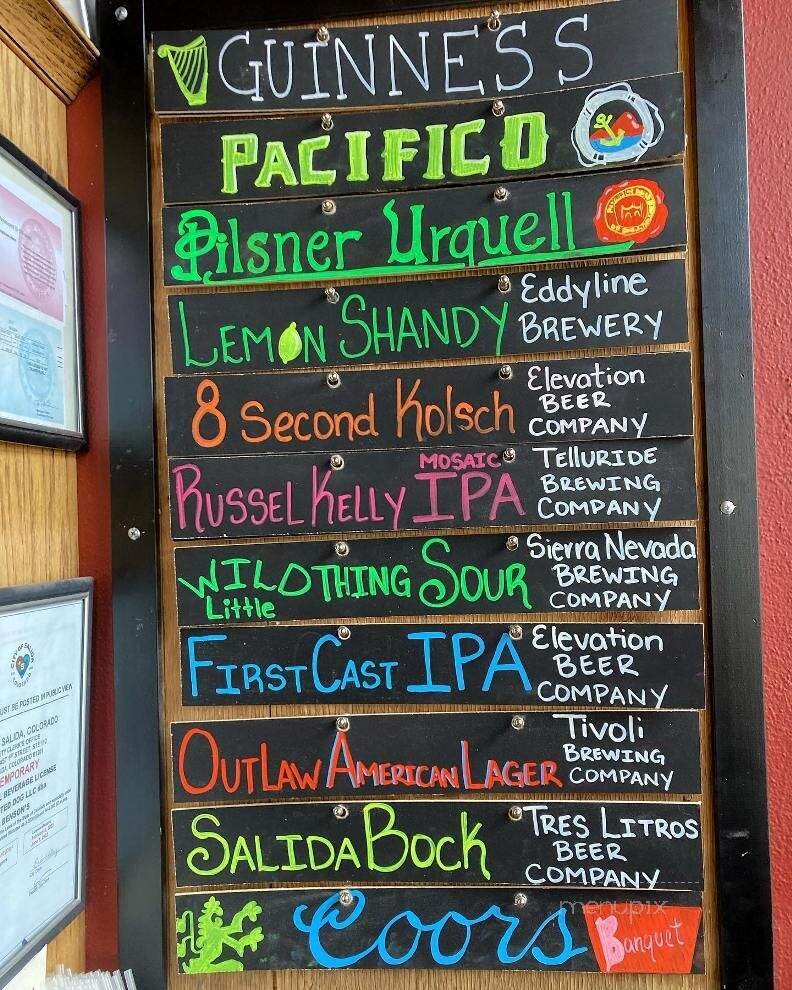 GUINNESS
PACIFICO
Pilsner Urquell
LEMON SHANDY Eddyline BREWERY
8 Second Kolsch Elevation BEER COMPANY
RUSSEL KELLY MOSAIC IPA TELLURIDE BREWING COMPANY
WILD Little THING SOUR Sierra Nevada BREWING COMPANY
FIRST CAST IPA Elevation BEER COMPANY
OUTLAW AMERICAN LAGER Tivoli BREWING COMPANY
SALIDA BOCK TRES LITROS BEER COMPANY
Coors Banquet
menupix
CITY OF SALIDA
UST BE POSTED IN PUBLIC VIEW
SALIDA, COLORADO
EMPORARY
BEVERAGE LICENSE
TED DOG LLC dba
BENSON'S